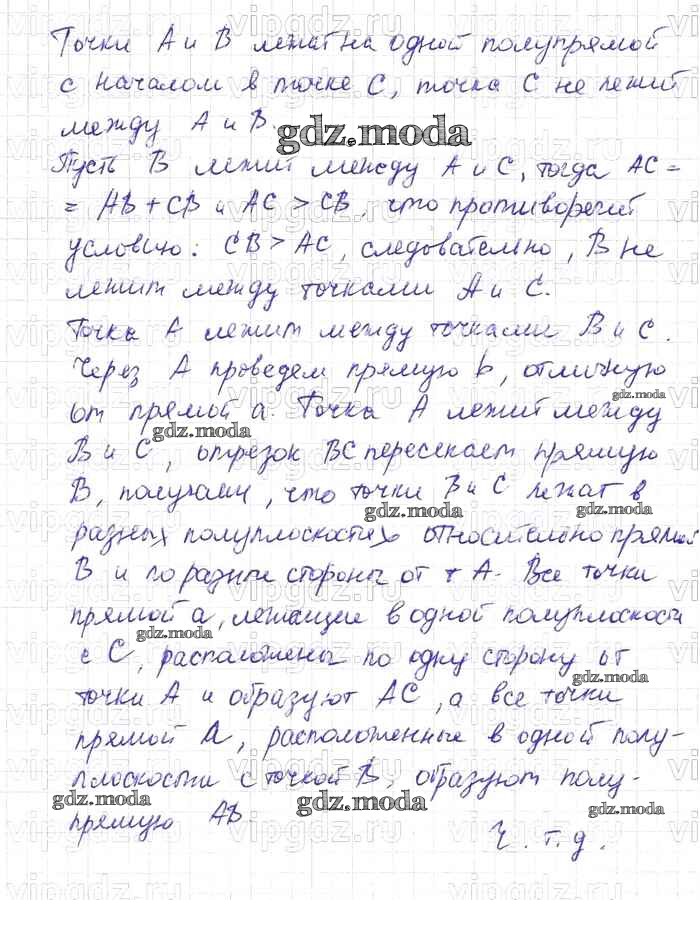 Точки А и В лежат на одной полупрямой
с началом в точке С, точка С не лежит
между А и В.
gdz.moda
Пусть В лежит между А и С, тогда АС =
= АВ + СВ и АС > СВ, что противоречит
условию: СВ > АС, следовательно, В не
лежит между точками А и С.
Точка А лежит между точками В и С.
Через А проведем прямую b, отличную
gdz.moda
от прямой а. Точка А лежит между
gdz.moda
В и С, отрезок ВС пересекает прямую
В, получаем, что точки В и С лежат в
gdz.moda
gdz.moda
разных полуплоскостях относительно прямой
В и по разные стороны от т А. Все точки
прямой а, лежащие в одной полуплоскости
gdz.moda
с С, расположены по одну сторону от
gdz.moda
точки А и образуют АС, а все точки
прямой а, расположенные в одной полу-
плоскости с точкой В, образуют полу-
gdz.moda
gdz.moda
gdz.moda
прямую АВ
Ч.т.д.